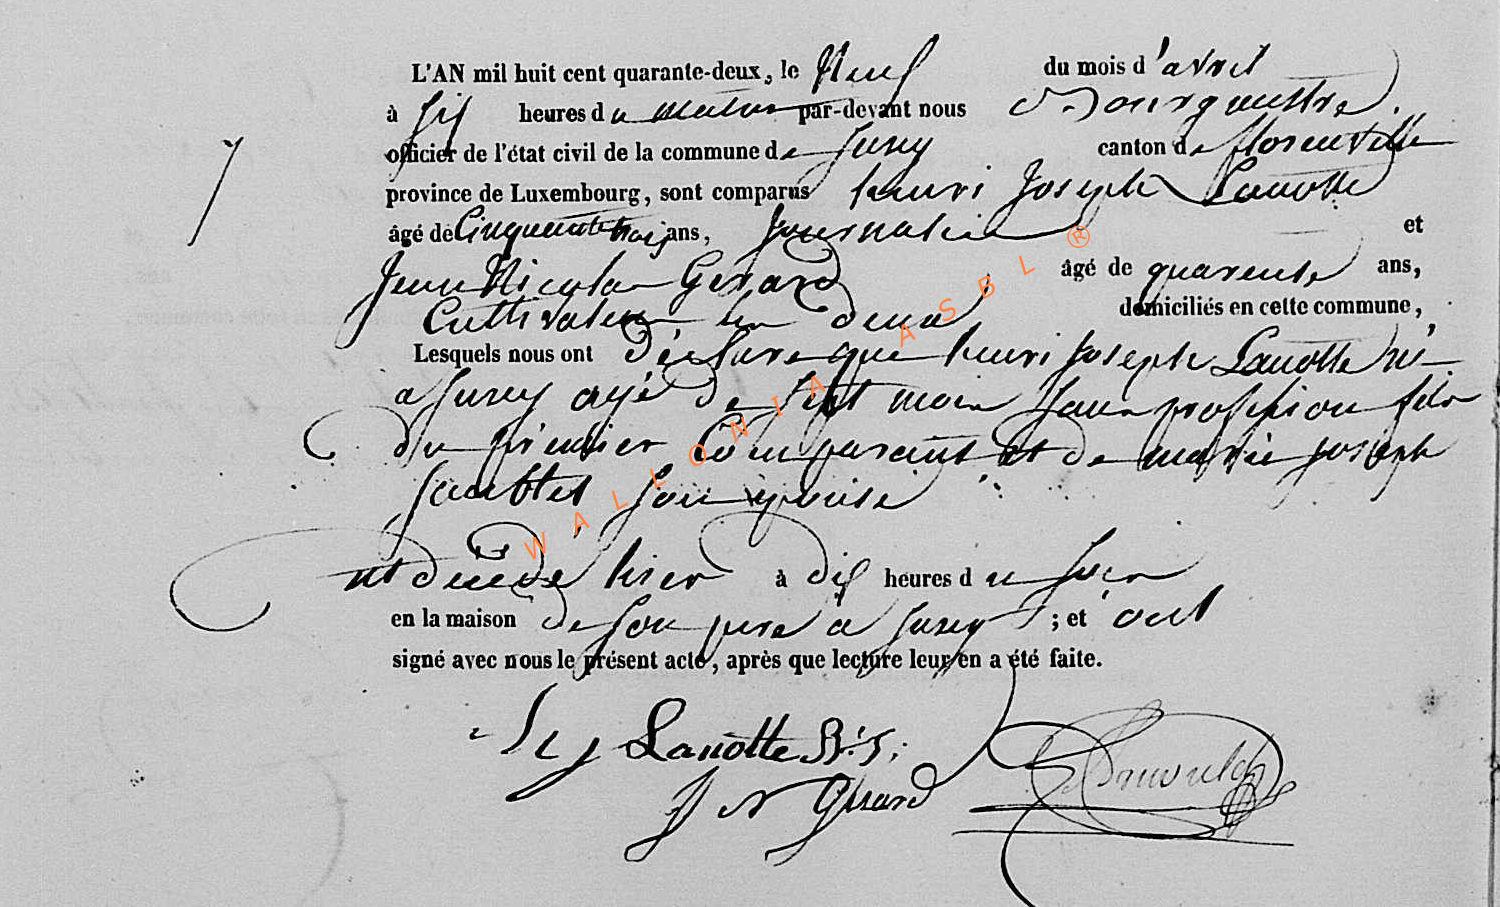 L'AN mil huit cent quarante-deux, le Neuf du mois d'avril
à six heures du matin par-devant nous Bourguemestre,
officier de l'état civil de la commune de canton de florenville
province de Luxembourg, sont comparus henri Joseph Lanotte
âgé de Cinquante trois ans, Journalier et
Jean Nicolas Gerard âgé de quarente ans,
Cultivateur, les deux domiciliés en cette commune,
Lesquels nous ont déclare que henri Joseph Lanotte né
a agé de sept mois sans profession fils
du premier Comparant et de marie joseph
son epouse
est decedé hier à dix heures du soir
en la maison de son pere a ; et ont
signé avec nous le présent acte, après que lecture leur en a été faite.
Lanotte
J N Gerard
WALLONIA ASBL ®
7